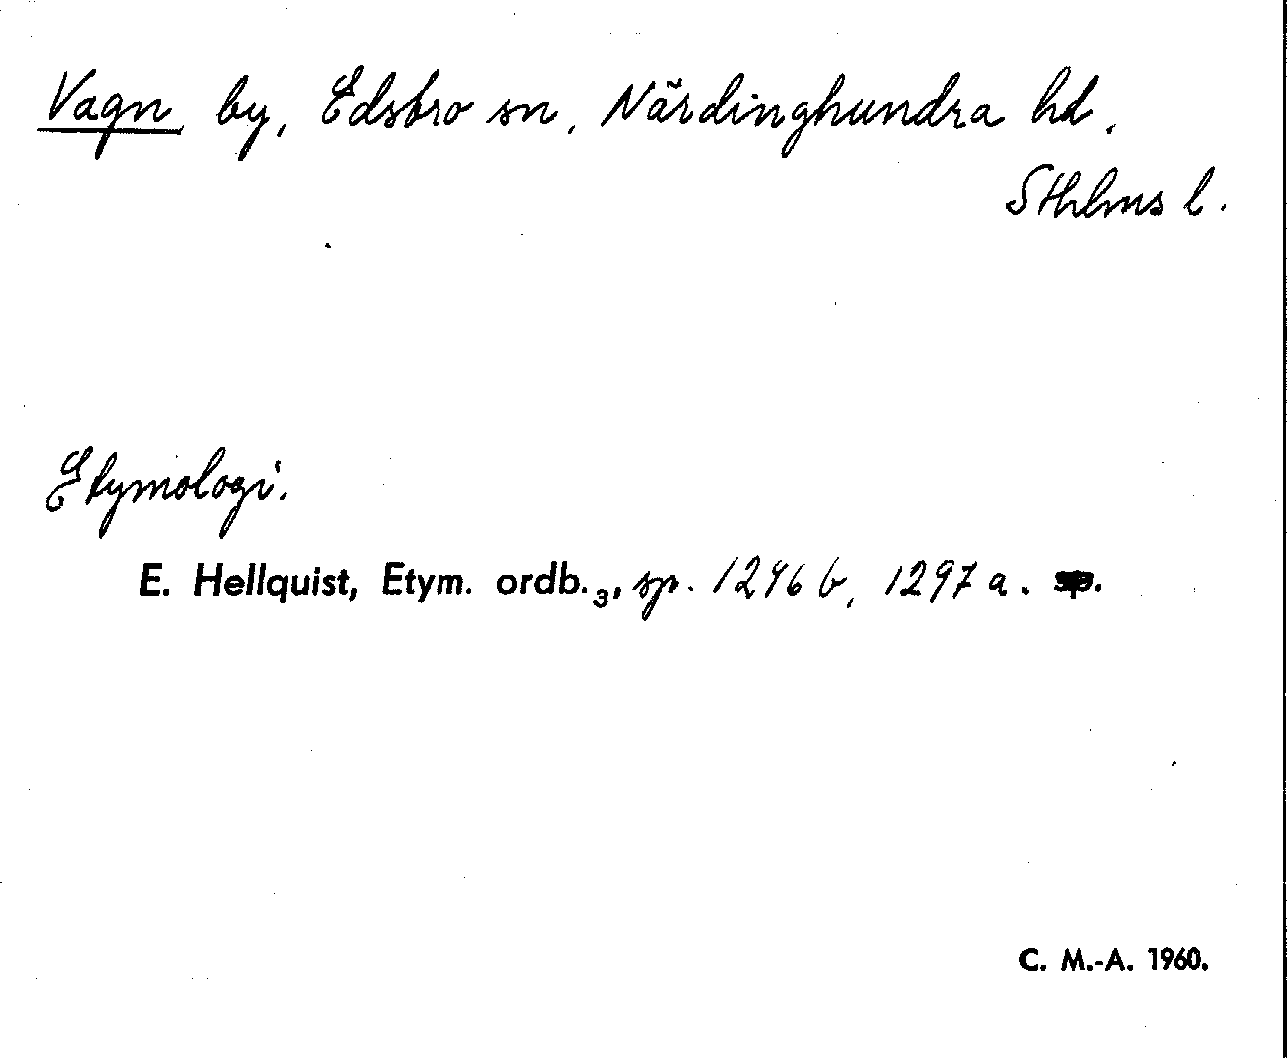 Vagn by, Edsbro sn, Närdinghundra hd,
Sthlms l.
Etymologi.
E. Hellquist, Etym. ordb.₃, sp. 1296 b, 1297 a. sp.
C. M.-A. 1960.